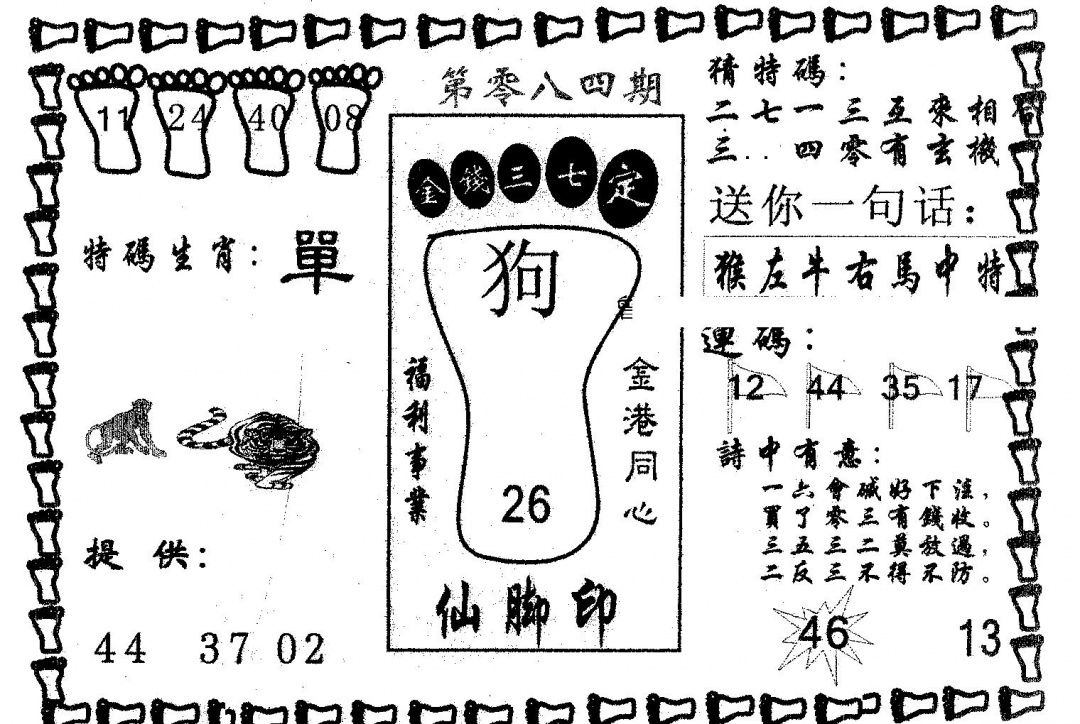 第零八四期
11 24 40 08
特碼生肖：單
提供：
44 37 02
金錢三七定
狗
福利事業
金港同心
26
仙脚印
猜特碼：
二七一三互來相
三..四零有玄機
送你一句话：
猴左牛右馬中特
連碼：
12 44 35 17
詩中有意：
一六會碱好下注，
買了零三有錢收。
三五三二莫放過，
二反三不得不防。
46 13